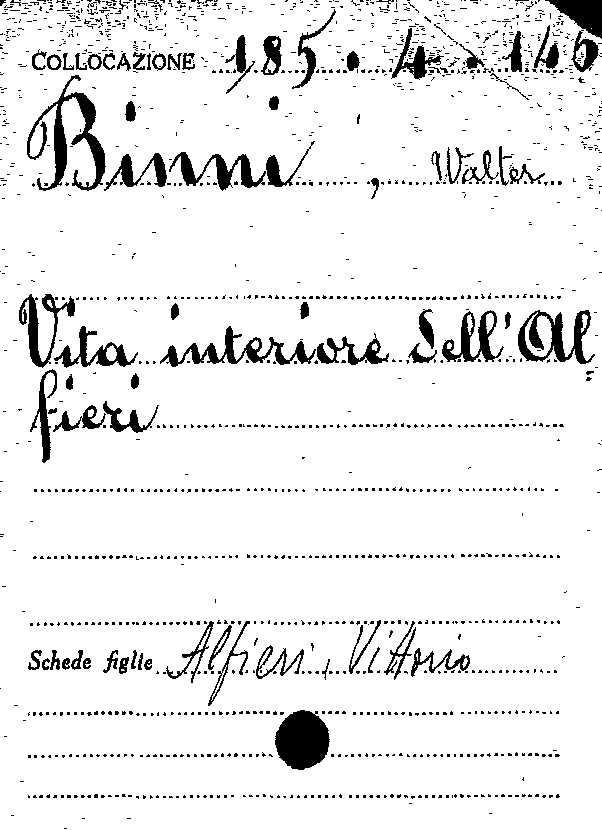 COLLOCAZIONE 185.4.146
Binni, Walter
Vita interiore dell'Al=
fieri
Schede figlie Alfieri, Vittorio